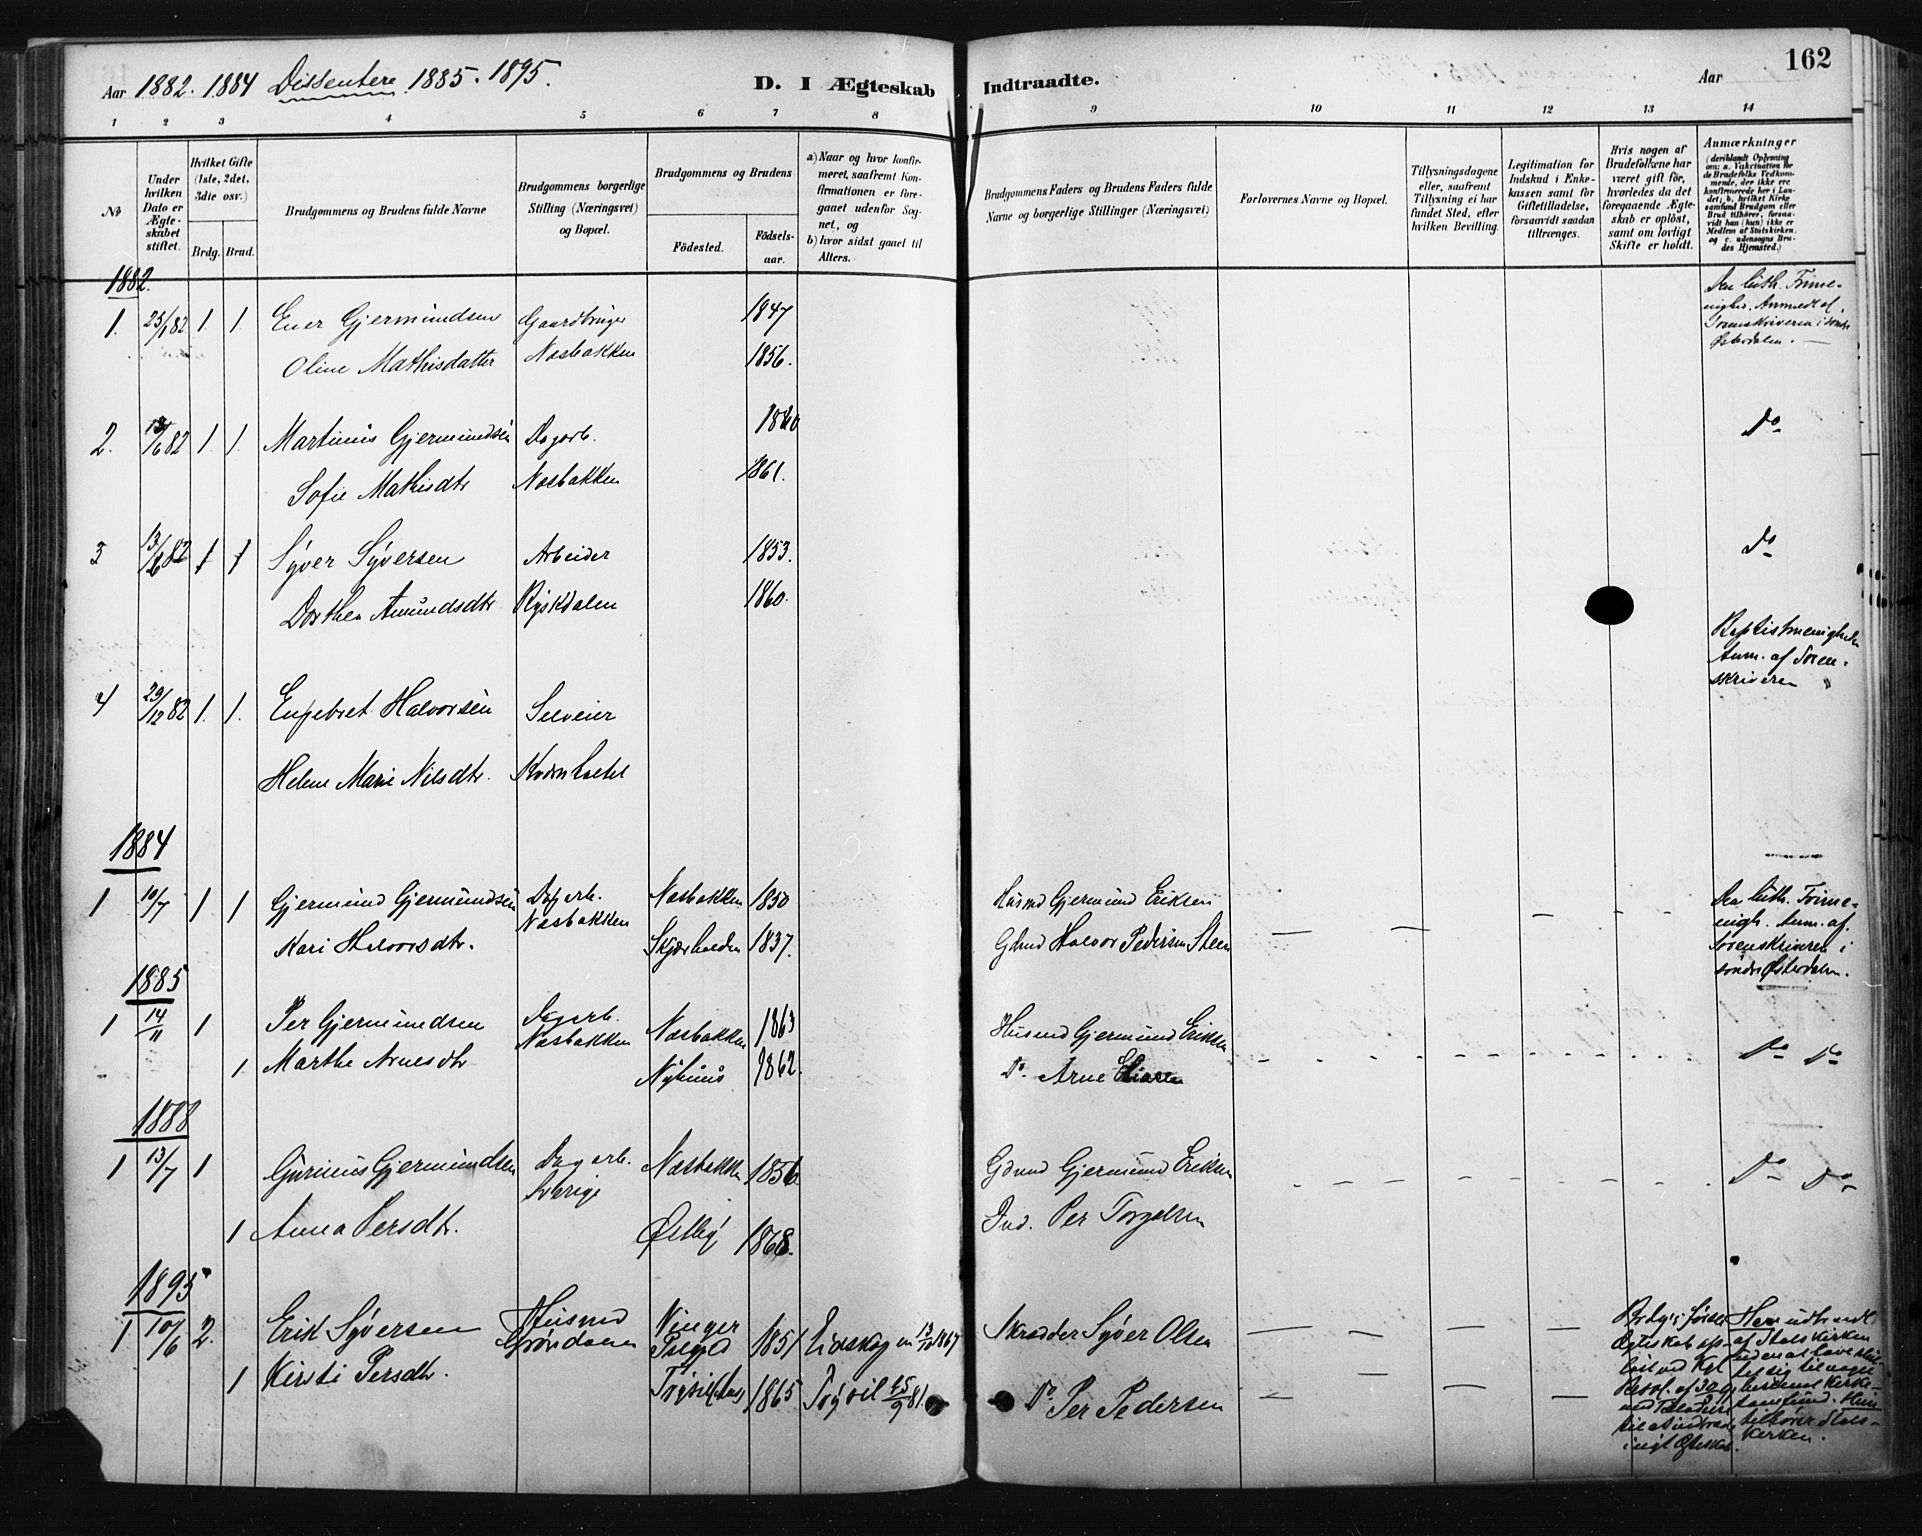 162
Aar 1882. 1884 Dissentere 1885. 1895.
D. I Ægteskab Indtraadte.
Aar
1 2 3 4 5 6 7 8 9 10 11 12 13 14
No
Under hvilken Dato er Ægteskabet stiftet.
Hvilket Gifte (1ste, 2det, 3die osv.)
Brdg. Brud.
Brudgommens og Brudens fulde Navne
Brudgommens borgerlige Stilling (Næringsvei) og Bopæl.
Brudgommens og Brudens
Födested. Födsels-aar.
a) Naar og hvor konfirmeret, saafremt Konfirmationen er foregaaet udenfor Sognet, og
b) hvor sidst gaaet til Alters.
Brudgommens Faders og Brudens Faders fulde Navne og borgerlige Stillinger (Næringsvei)
Forlovernes Navne og Bopæl.
Tillysningsdagene eller, saafremt Tillysning ei har fundet Sted, efter hvilken Bevilling.
Legitimation for Indskud i Enkekassen samt for Giftetilladelse, forsaavidt saadan tiltrænges.
Hvis nogen af Brudefolkene har været gift før, hvorledes da det foregaaende Ægteskab er opløst, samt om lovligt Skifte er holdt.
Anmærkninger
(deriblandt Oplysning om: a. Vakcination for de Brudefolks Vedkommende, der ikke ere konfirmerede her i Landet; b. hvilket Kirkesamfund Brudgom eller Brud tilhörer, forsaavidt han (hun) ikke er Medlem af Statskirken, og c. udensogns Brudes Hjemsted.)
1882.
1. 25/1 82 1. 1. Ener Gjermundsen Gaardbruger 1847
Oline Mathisdatter Næsbakken 1856.
Den luth. Frimenigh. Anmeldt af Sorenskriveren i søndre Østerdalen.
2. 13/6 82 1. 1. Martinus Gjermundsen Dagarb. 1860 Do
Sofie Mathisdtr Næsbakken 1861.
3 13/6 82 1 1 Syver Syversen Arbeider 1853. Do
Dorthea Amundsdtr Ryskdalen 1860.
Baptistmenigheden Anm. af Sorenskriveren
4 29/12 82 1. 1. Engebret Halvorsen Selveier
Helene Marie Nilsdtr.
1884
1 10/7 1 1 Gjermund Gjermundsen Dagarb. Næsbakken Næsbakken 1850 Husmd Gjermund Eriksen
Kari Halvorsdtr. Skjærholden 1837. Gdmd Halvor Pedersen Steen
Den luth. Frimenigh. Anm. af Sorenskriveren i søndr Østerdalen.
1885
1 14/11 1 Per Gjermundsen Dagarb. Næsbakken Næsbakken 1863 Husmd Gjermund Eriksen Do Do
1. Marthe Arnesdtr 1862. Do. Arne
1888
1 13/7 1 Gjermundsen Dagarb. Sverige Næsbakken 1856. Gdmd Gjermund Eriksen Do Do
1 Anna Persdtr. Østby 1868. Ind. Per
1895
1 10/6 2. Erik Syversen Husmd Grøndalen Vinger 1851 Eidskog 1867 Skrædder Syver Olsen
1 Kirsti Persdtr. Trysil 1865 Trysil 25/9 81. Do Per Pedersen
Brdg.s første Ægteskab opløst ved Kgl. Resol. af
Han udtraadt af Statskirken uden at have sluttet sig til noget bestemt Kirkesamfund. Hun tilhører Statskirken.